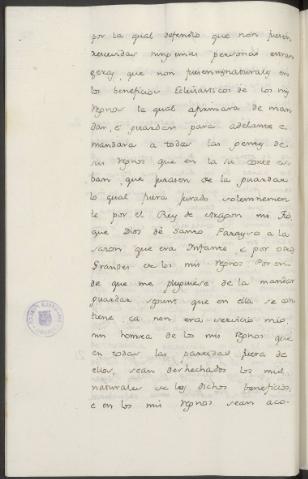 por la qual defendio que non fuesen
rescividas ningunas personas estran
geras, que non fuesen naturales en
los beneficios Eclesiasticos de los mis
regnos la qual afirmara de man
dar, e guardar para adelante e
mandara a todas las gentes de
sus regnos que en la su corte es
ban, que jurasen de la guardar
lo qual fuera jurado solemnemen
te por el Rey de Aragon mi tio,
que Dios dé Santo Parayso a la
sazon que era Infante e por otros
Grandes de los mis regnos Por en
de que me plugiese de la mandar
guardar segunt que en ella se con
tiene ca non era servicio mio,
nin honrra de los mis regnos que
en todas las partidas fuera de
ellos, sean deshechados los mis
naturales de los dichos beneficios,
e en los mis regnos sean aco-